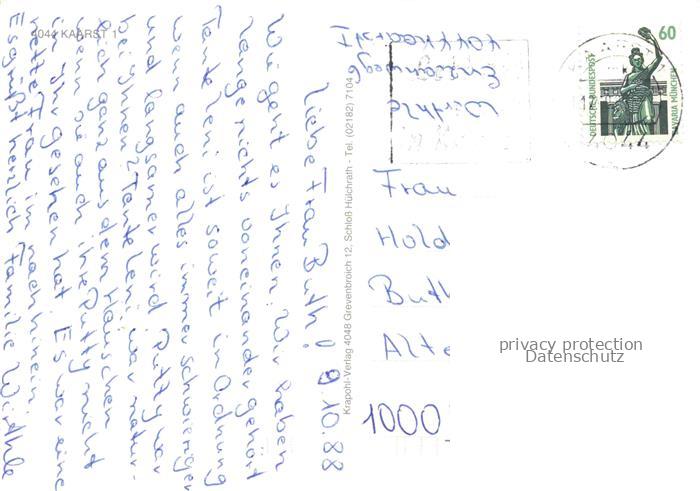 4044 KAARST 1
Liebe Frau Buth! 9.10.88
Wie geht es Ihnen. Wir haben
lange nichts voneinander gehört
Tante Leni ist soweit in Ordnung
wenn auch alles immer schwieriger
und langsamer wird. Putty war
bei Ihnen? Tante Leni war natür-
lich ganz aus dem Häuschen
wenn sie auch ihre Putty nicht
in ihr gesehen hat. Es war eine
nette Frau im nachhinein.
Es grüßt herzlich Familie Würthle
Krapohl-Verlag 4048 Grevenbroich 12, Schloß Hülchrath - Tel. (02182) 7104
Würthle
Enzianweg 6
4044 Kaarst 1
60
DEUTSCHE BUNDESPOST
BAVARIA MÜNCHEN
Frau
Hold
Buth
Alte
1000
privacy protection
Datenschutz